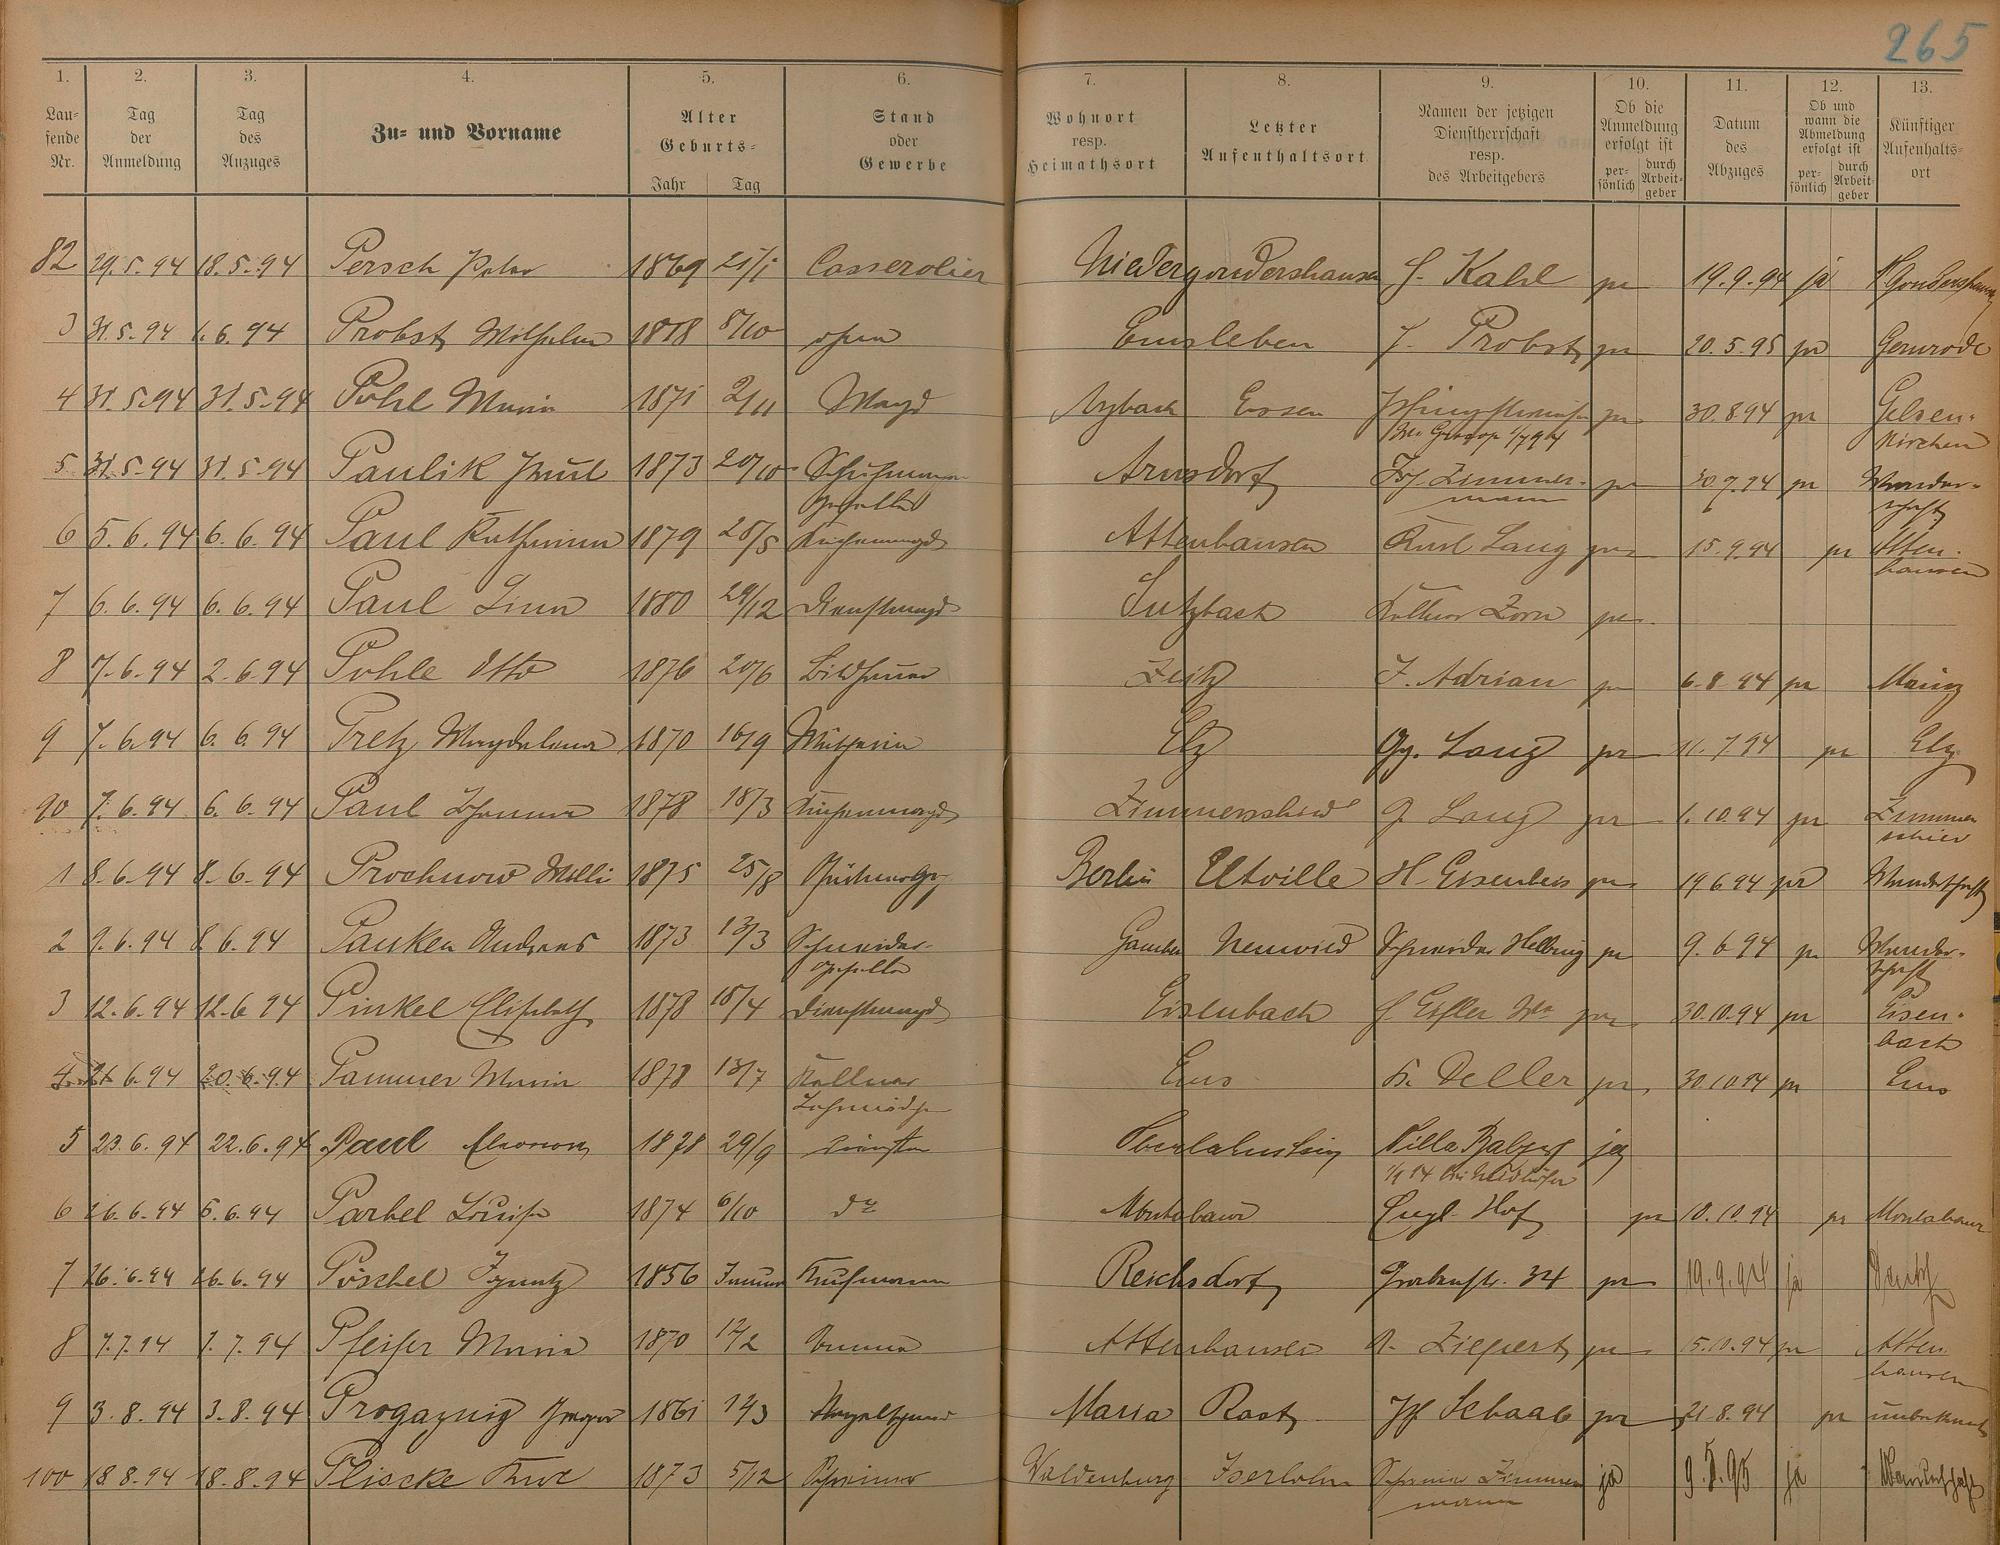 265
1. 2. 3. 4. 5. 6. 7. 8. 9. 10. 11. 12. 13.
Laufende Nr.
Tag der Anmeldung
Tag des Anzuges
Zu- und Vorname
Alter Geburts- Jahr Tag
Stand oder Gewerbe
Wohnort resp. Heimathsort
Letzter Aufenthaltsort
Namen der jetzigen Dienstherrschaft resp. des Arbeitgebers
Ob die Anmeldung erfolgt ist persönlich durch Arbeitgeber
Datum des Abzuges
Ob und wann die Abmeldung erfolgt ist persönlich durch Arbeitgeber
Künftiger Aufenhalts-ort
82 29.5.94 18.5.94 Persch Peter 1869 21/1 Casserolier Niedergondershausen J. Kahl pr 19.9.94 ja
3 31.5.94 1.6.94 Probst Wilhelm 1878 8/10 ohne Emsleben J. Probst pr 20.5.95 pr Gernrode
4 31.5.94 31.5.94 Pohl Maria 1871 2/11 Magd Arzbach Essen pr 30.8.94 pr Gelsen-
kirchen
5 31.5.94 31.5.94 Paulik Paul 1873 20/10 Arnsdorf Jos. Zimmer- pr 30.7.94 pr Wander-
mann schaft
6 5.6.94 6.6.94 Paul Katharina 1879 28/5 Küchenmagd Attenhausen Karl Lang pr 15.9.94 pr Atten-
hausen
7 6.6.94 6.6.94 Paul Lina 1880 29/12 Dienstmagd Sulzbach Zorn pr
8 7.6.94 2.6.94 Pohle Otto 1876 20/6 Bildhauer Zeitz J. Adrian pr 6.8.94 pr Mainz
9 7.6.94 6.6.94 Pretz Magdalena 1870 16/9 Elz Gg. Lang pr 11.7.94 pr Elz
90 7.6.94 6.6.94 Paul Johanna 1878 18/3 Küchenmagd Zimmerschied G Lang pr 1.10.94 pr Zimmer
schied
1 8.6.94 8.6.94 Prochnow Willi 1875 25/8 Berlin Eltville H. Eisenbeis pr 19.6.94 pr Wanderschaft
2 9.6.94 8.6.94 Panken Andreas 1873 13/3 Schneider- Neuwied Schneider Helbing pr 9.6.94 pr Wander-
geselle schaft
3 12.6.94 12.6.94 Pinkel Elisabeth 1878 18/4 Dienstmagd Eisenbach pr 30.10.94 pr Eisen-
bach
4 6.94 20.6.94 Pammer Maria 1878 13/7 Ems Fr. Deller pr 30.10.94 pr Ems
5 23.6.94 22.6.94 Paul Eleonora 1878 29/9 Oberlahnstein Villa ja
6 26.6.94 5.6.94 Parbel Louise 1874 6/10 do Montabaur Engl. Hof pr 10.10.94 pr Montabaur
7 26.6.94 26.6.94 Pöschel Ignatz 1856 Januar Kaufmann Reichsdorf Grabenstr. 34 pr 19.9.94 ja
8 7.7.94 7.7.94 Pfeifer Maria 1870 12/2 Attenhausen pr 15.10.94 pr Atten
hausen
9 3.8.94 3.8.94 Progaznig 1861 12/3 Maria Rast Jos. Schaab pr 21.8.94 pr unbekannt
100 18.8.94 18.8.94 Pliscke Kurt 1873 5/12 Schreiner Waldenburg Iserlohn Schreiner Zimmer ja 9.5.95 ja Wanderschaft
mann